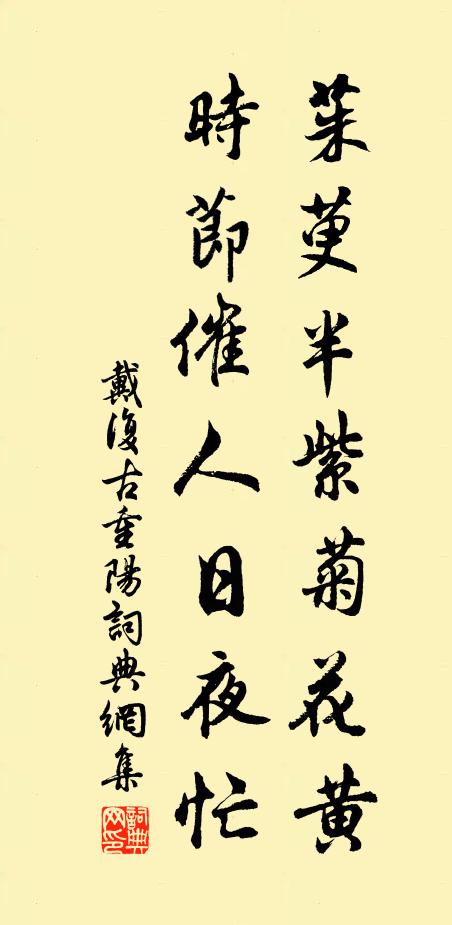 茱萸半紫菊花黄
時節催人日夜忙
戴復古重陽詞典網集
詞典网印